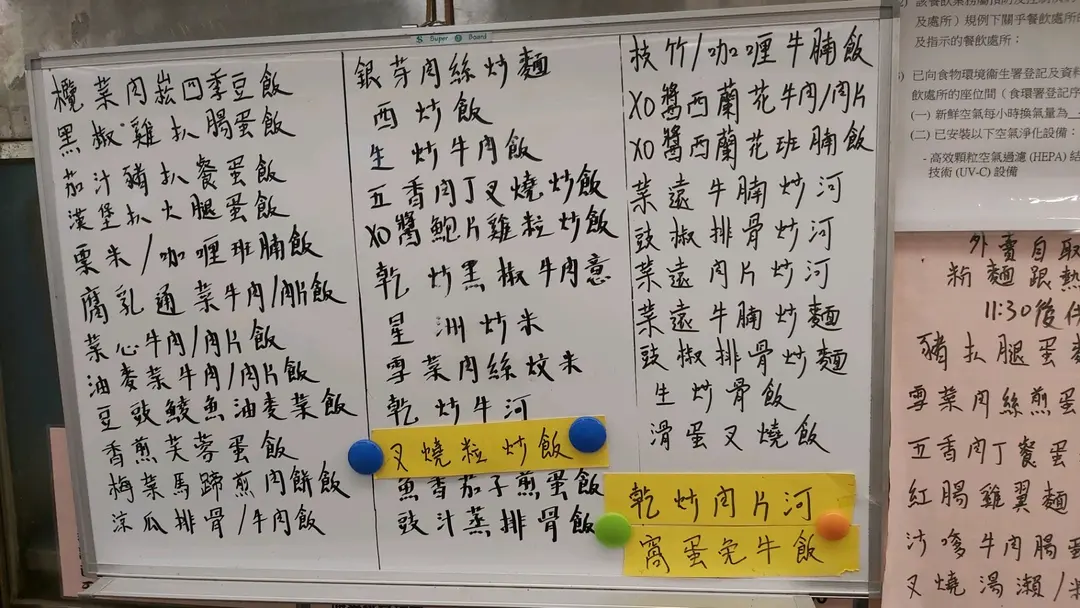 Super Board
欖菜肉崧四季豆飯
黑椒雞扒腸蛋飯
茄汁豬扒餐蛋飯
漢堡扒火腿蛋飯
粟米/咖喱班腩飯
腐乳通菜牛肉/肉片飯
菜心牛肉/肉片飯
油麥菜牛肉/肉片飯
豆豉鯪魚油麥菜飯
香煎芙蓉蛋飯
梅菜馬蹄煎肉餅飯
涼瓜排骨/牛肉飯
銀芽肉絲炒麵
西炒飯
生炒牛肉飯
五香肉丁叉燒炒飯
XO醬鮑片雞粒炒飯
乾炒黑椒牛肉意
星洲炒米
雪菜肉絲炆米
乾炒牛河
叉燒粒炒飯
魚香茄子煎蛋飯
豉汁蒸排骨飯
枝竹/咖喱牛腩飯
XO醬西蘭花牛肉/肉片
XO醬西蘭花班腩飯
菜遠牛腩炒河
豉椒排骨炒河
菜遠肉片炒河
菜遠牛腩炒麵
豉椒排骨炒麵
生炒骨飯
滑蛋叉燒飯
乾炒肉片河
窩蛋免牛飯
及處所）規例下關乎餐飲處所
及指示的餐飲處所；
已向食物環境衞生署登記及資料
飲處所的座位間（食環署登記序
(一) 新鮮空氣每小時換氣量為
(二) 已安裝以下空氣淨化設備：
- 高效顆粒空氣過濾 (HEPA) 結
技術 (UV-C) 設備
外賣自取
粉麵跟熱
11:30後
豬扒腿蛋
雪菜肉絲煎蛋
五香肉丁餐蛋
紅腸雞翼麵
沙嗲牛肉腸蛋
叉燒湯瀨/米